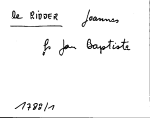 le RIDDER Joannes
fs Jan Baptiste
1788/1